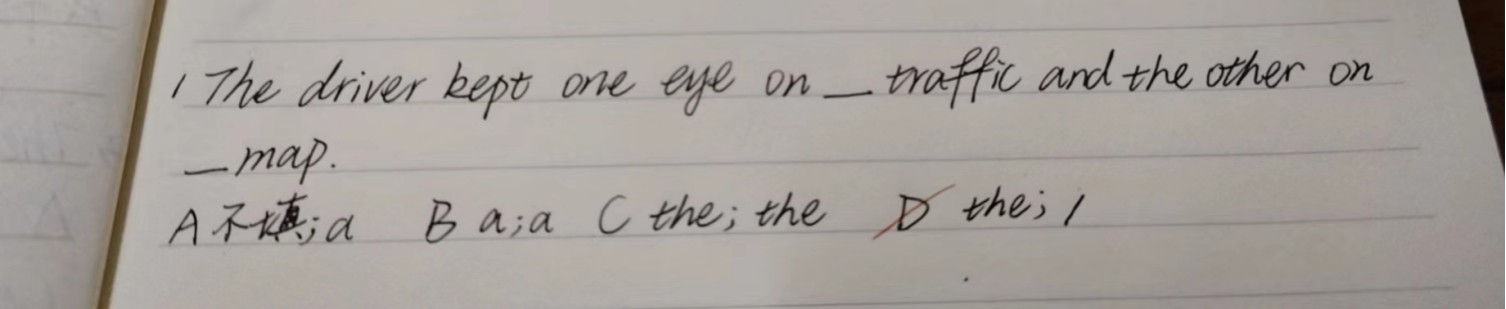 1 The driver kept one eye on _ traffic and the other on
_ map.
A 不填;a B a;a C the; the D the; /